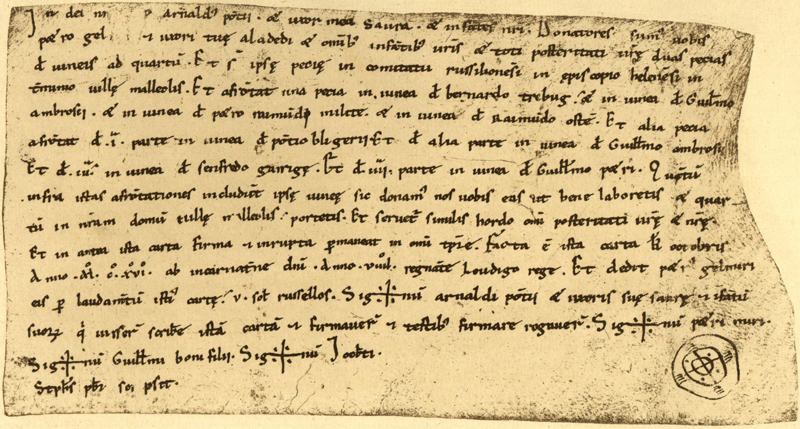 In dei n arnaldus põtii · & uxor mea Saura · & infãtes nr̃i · Donatores sum' uobis
petro gel & uxori tuę aladedi & omĩb; infãtib; ur̃is & toti posteritati ur̃ę duas pecias
d̃ uineis ad quartũ · Et st̃ ipsę pecię in comitatu russilionensi in episcopio helenensi in
t̃minio uillę malleolis · Et afrõtat una pecia in uinea d̃ bernardo trebug · & in uinea d̃ Guilmo
ambrosii · & in uinea d̃ petro raimũdi milite · & in uinea d̃ Raimũdo oste · Et alia pecia
afrõtat d̃ · i · parte in uinea d̃ põtio bligerii Et d̃ alia parte in uinea d̃ Guilmo ambrosii
Et d̃ · iii · in uinea d̃ senfredo garrigę · Et d̃ · iiii · parte in uinea d̃ Guilmo petri · Quãtũ
infra istas afrõtationes includũt ipsę uineę sic donam' nos uobis eas ut bene laboretis & quar
tũ in nr̃am domũ uillę malleolis portetis · Et seruet' similis hordo om̃i posteritati ur̃ę & nr̃ę ·
Et in antea ista carta firma & inrupta p̃maneat in om̃i tp̃re · Facta ẽ ista carta kl̃ octobris
Anno · M̊ · C̊ · XVI̊ · ab incarnatiõe dñi · Anno · VIIII · regnãte Lodoigo rege · Et dedit petrus gelmiri
eis p̃ laudam̃tũ isti' cartę · v · sol̃ russellos · Sig+nũ arnaldi põtii & uxoris suę saurę & ifãtũ
suorũ q̃ iusser̃ scribe istã cartã & firmauer̃ & testib; firmare rogauer̃ · Sig+nũ petri miri ·
Sig+nũ Guilmi bonifilii · Sig+nũ Jozb̃ti ·
Stephs pb̃r scripsit ·